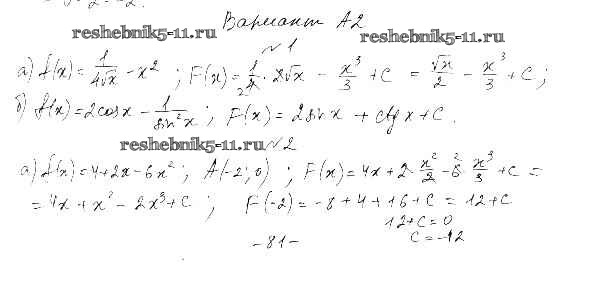 Вариант А2
reshebnik5-11.ru reshebnik5-11.ru
№1
а) f(x) = 1/(4√x) - x² ; F(x) = 1/4 · 2√x - x³/3 + C = √x/2 - x³/3 + C ;
б) f(x) = 2cosx - 1/sin²x ; F(x) = 2sinx + ctgx + C .
reshebnik5-11.ru №2
а) f(x) = 4 + 2x - 6x² ; A(-2; 0) ; F(x) = 4x + 2 · x²/2 - 6 · x³/3 + C =
= 4x + x² - 2x³ + C ; F(-2) = -8 + 4 + 16 + C = 12 + C
12 + C = 0
-81- C = -12